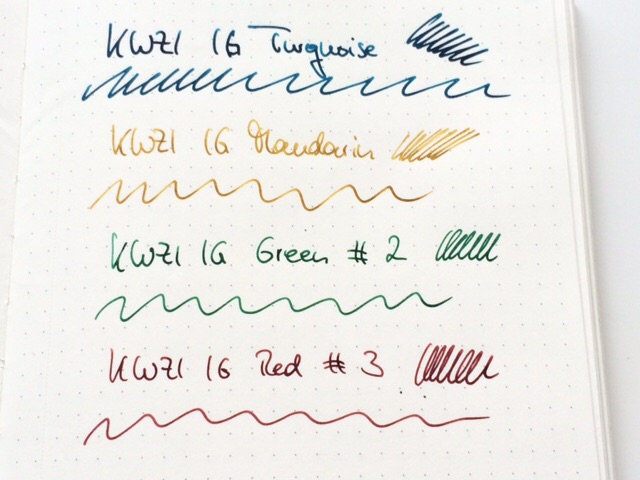 KWZI IG Turquoise
KWZI IG Mandarin
KWZI IG Green # 2
KWZI IG Red # 3